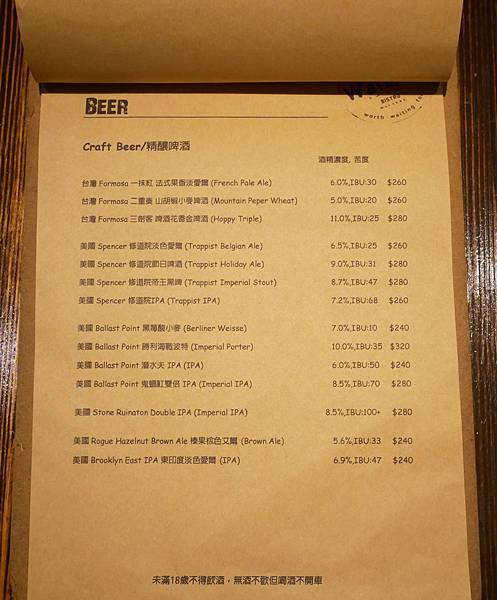 BEER
BISTRO
worth waiting
Craft Beer/精釀啤酒
酒精濃度, 苦度
台灣 Formosa 一抹紅 法式果香淡愛爾 (French Pale Ale) 6.0%,IBU:30 $260
台灣 Formosa 二重奏 山胡椒小麥啤酒 (Mountain Peper Wheat) 5.0%,IBU:20 $260
台灣 Formosa 三劍客 啤酒花香金啤酒 (Hoppy Triple) 11.0%,IBU:25 $280
美國 Spencer 修道院淡色愛爾 (Trappist Belgian Ale) 6.5%,IBU:25 $260
美國 Spencer 修道院節日啤酒 (Trappist Holiday Ale) 9.0%,IBU:31 $280
美國 Spencer 修道院帝王黑啤 (Trappist Imperial Stout) 8.7%,IBU:47 $280
美國 Spencer 修道院IPA (Trappist IPA) 7.2%,IBU:68 $260
美國 Ballast Point 黑莓酸小麥 (Berliner Weisse) 7.0%,IBU:10 $240
美國 Ballast Point 勝利海戰波特 (Imperial Porter) 10.0%,IBU:35 $320
美國 Ballast Point 潛水夫 IPA (IPA) 6.0%,IBU:50 $240
美國 Ballast Point 鬼蝠魟雙倍 IPA (Imperial IPA) 8.5%,IBU:70 $280
美國 Stone Ruinaton Double IPA (Imperial IPA) 8.5%,IBU:100+ $280
美國 Rogue Hazelnut Brown Ale 榛果棕色艾爾 (Brown Ale) 5.6%,IBU:33 $240
美國 Brooklyn East IPA 東印度淡色愛爾 (IPA) 6.9%,IBU:47 $240
未滿18歲不得飲酒，無酒不歡但喝酒不開車